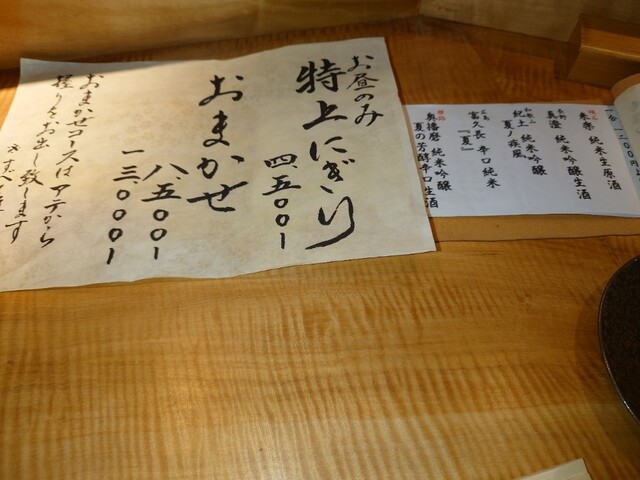 お昼のみ
特上にぎり
四、五〇〇ー
おまかせ
八、五〇〇ー
一三、〇〇〇ー
おまかせコースはアテから
握りをお出し致します
一合 一二〇〇円
来楽 純米生原酒
真澄 純米吟醸生酒
紀土 純米吟醸
夏ノ疾風
富久長 辛口純米
『夏』
奥播磨 純米吟醸
夏の芳醇辛口生酒